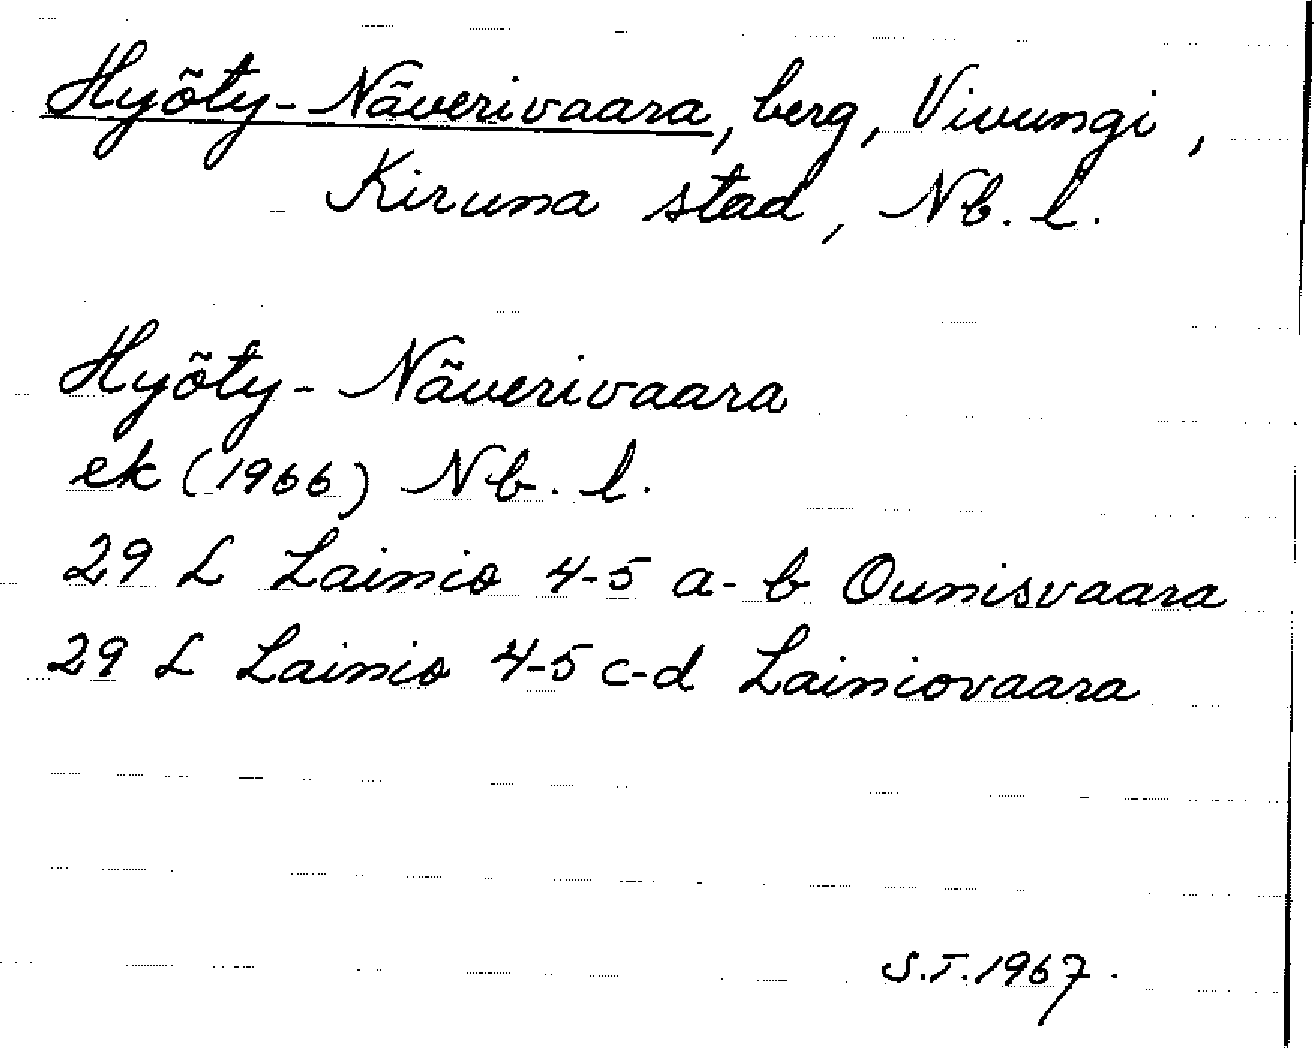 Hyöty-Näverivaara, berg, Vivungi,
Kiruna stad, Nb. l.
Hyöty-Näverivaara
ek (1966) Nb. l.
29 L Lainio 4-5 a-b Ounisvaara
29 L Lainio 4-5 c-d Lainiovaara
S.T. 1967.